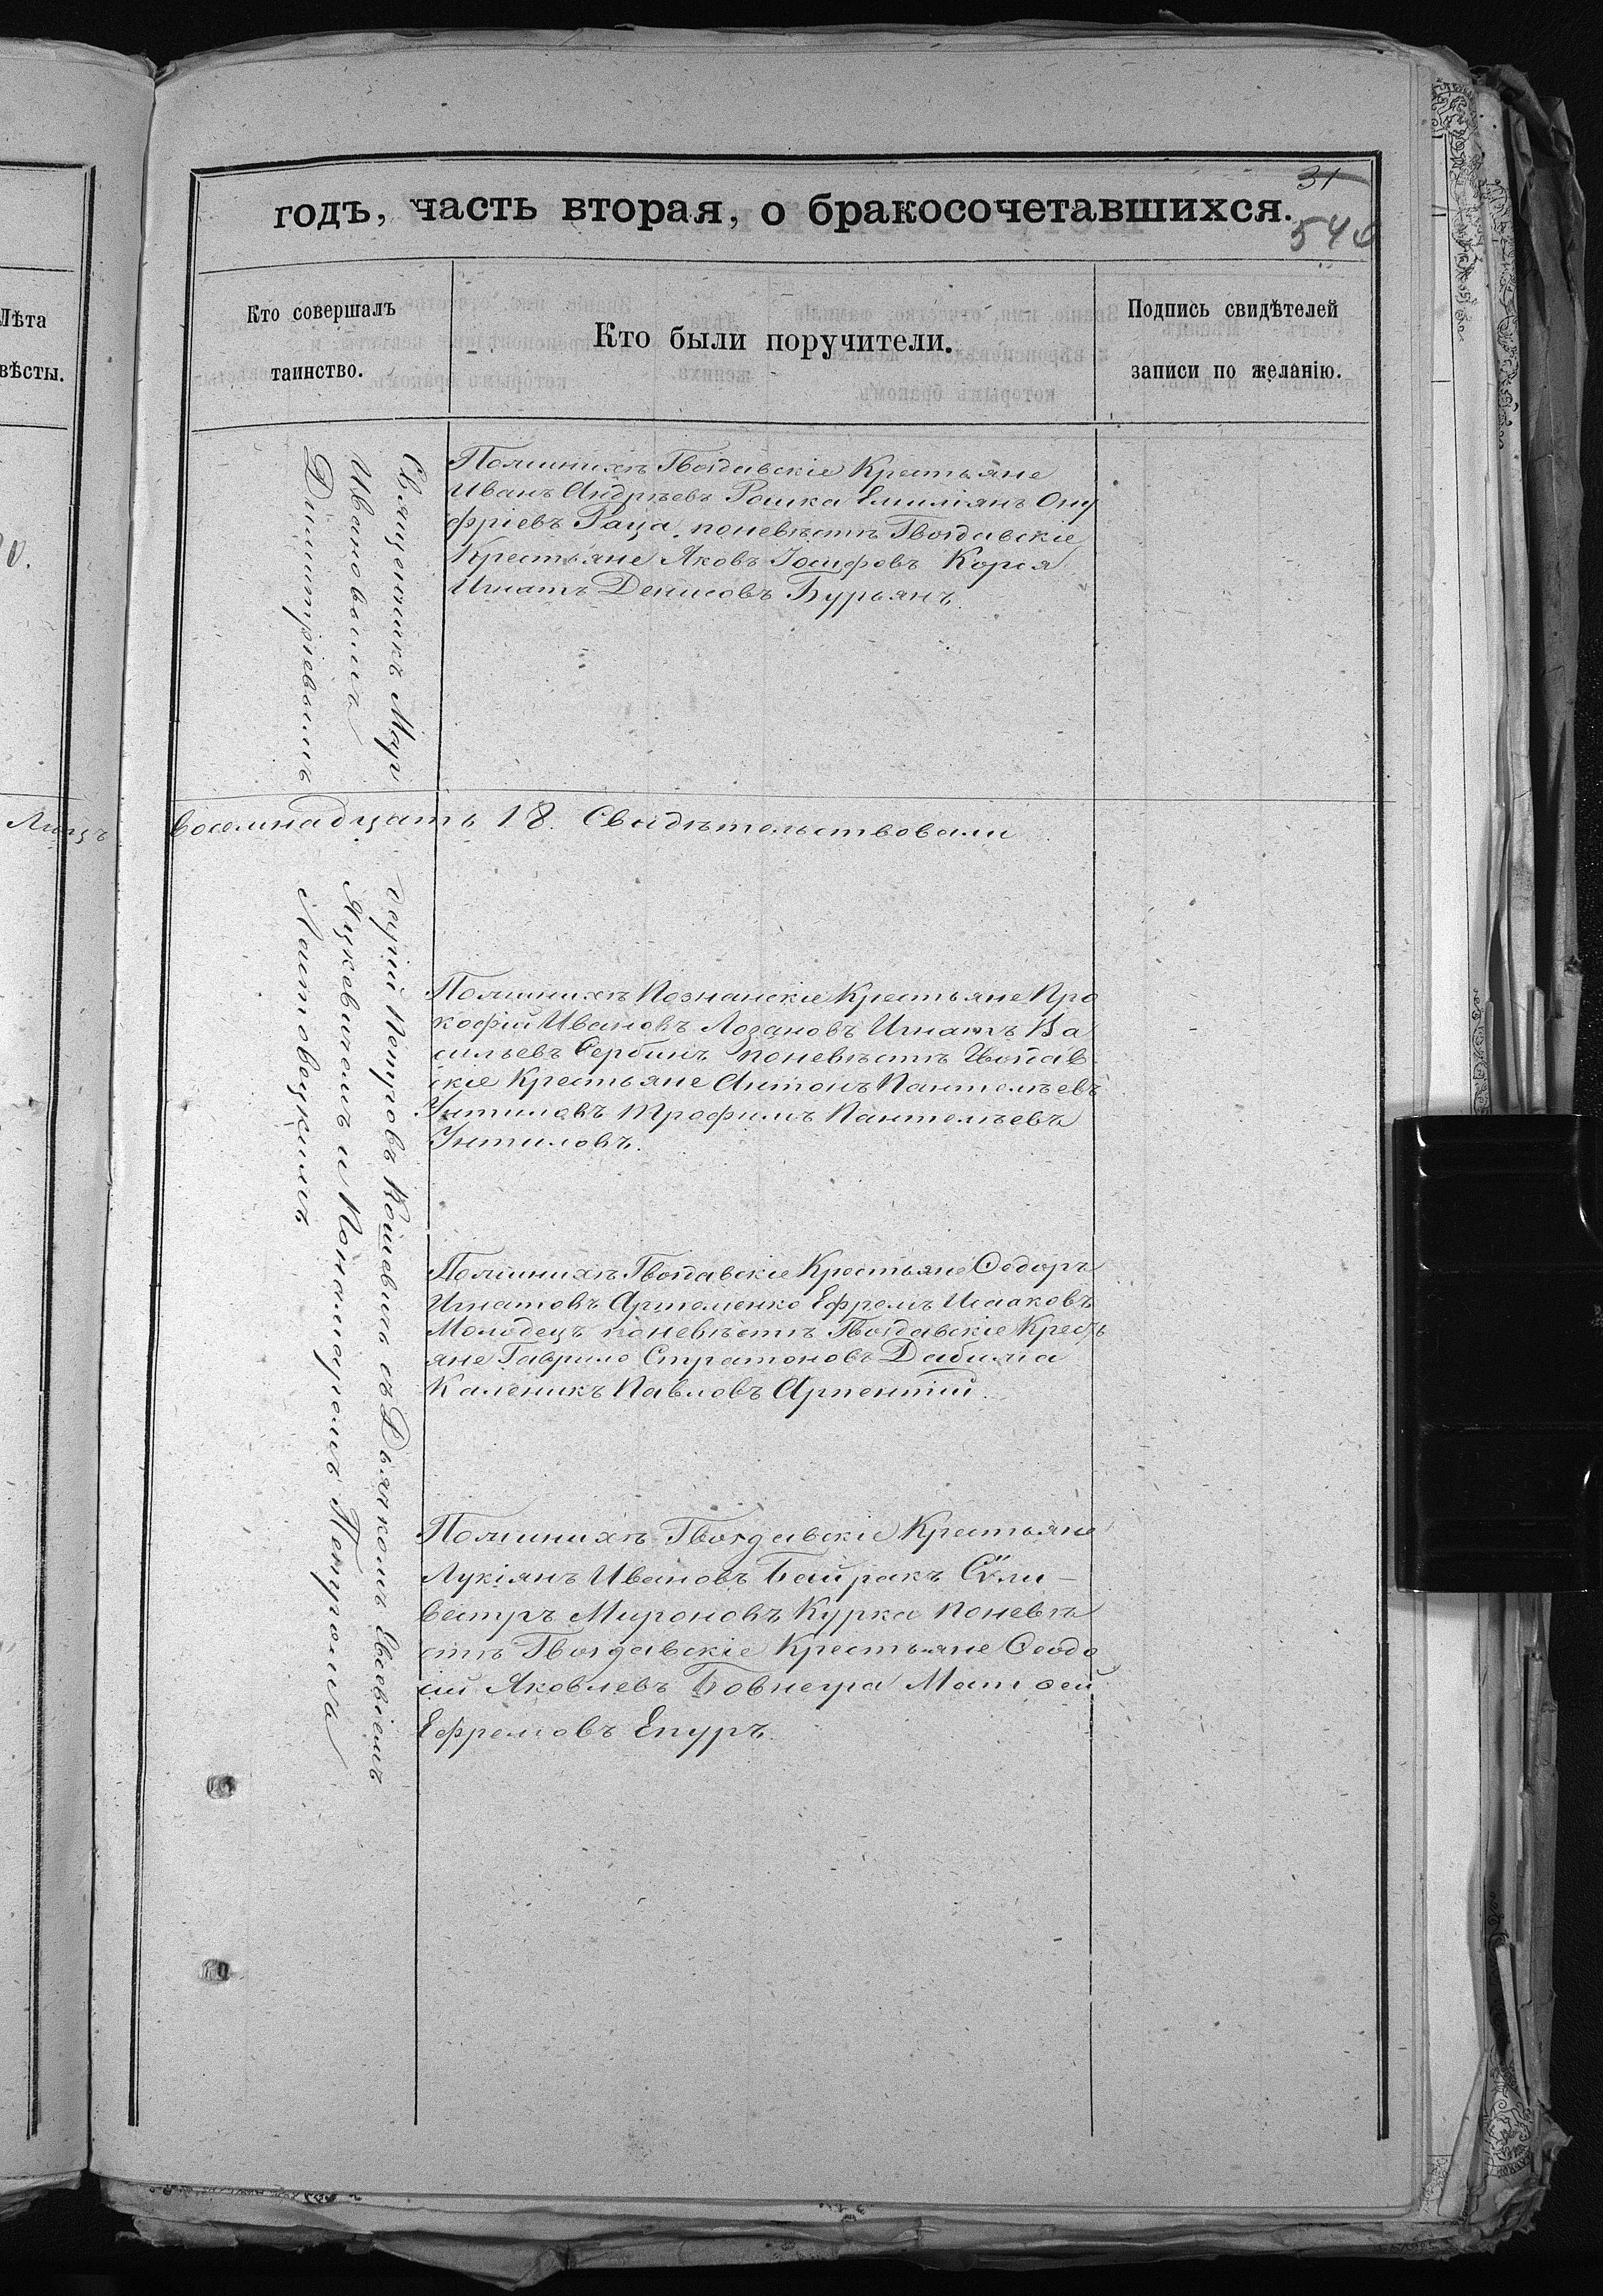 31
годъ, часть вторая, о бракосочетавшихся.
546
Лѣта
вѣсты.
Кто совершалъ
таинство.
Кто были поручители.
Подпись свидѣтелей
записи по желанію.
Священникъ
Ивановымъ
Димитріевымъ
Поженихѣ Гвоздавскіе Крестьяне
Иванъ Андрѣевъ Рошка Емиліянъ Ону
фріевъ Раца поневѣстѣ Гвоздавскіе
Крестьяне Яковъ Іосифовъ Корея
Игнатъ Денисовъ Бурьянъ.
Лицъ
восемнадцать 18. Свидѣтельствовали
Петровъ Кошевичъ съ Дьякомъ Евсевіемъ
Яцкевичемъ и Пономаремъ Петромъ
Ластовецкимъ
Поженихѣ Познанскіе Крестьяне Про
кофій Ивановъ Лозановъ Игнатъ Ва
сильевъ Сербинъ поневѣстѣ
скіе Крестьяне Антонъ Пантелѣевъ
Унтиловъ Трофимъ Пантелѣевъ
Унтиловъ.
Поженихѣ Гвоздавскіе Крестьяне Ѳедоръ
Игнатовъ Артеменко Ефремъ Исаковъ
Молодецъ поневѣстѣ Гвоздавскіе Кресть
яне Гаврило Стратоновъ Дабижа
Каленикъ Павловъ Арпентій.
Поженихѣ Гвоздавскіе Крестьяне
Лукіянъ Ивановъ Байракъ Сѵли-
вестръ Мироновъ Курка поневѣ
стѣ Гвоздавскіе Крестьяне Ѳеодо
сій Яковлевъ Бовнегра Матѳей
Ефремовъ Епуръ.